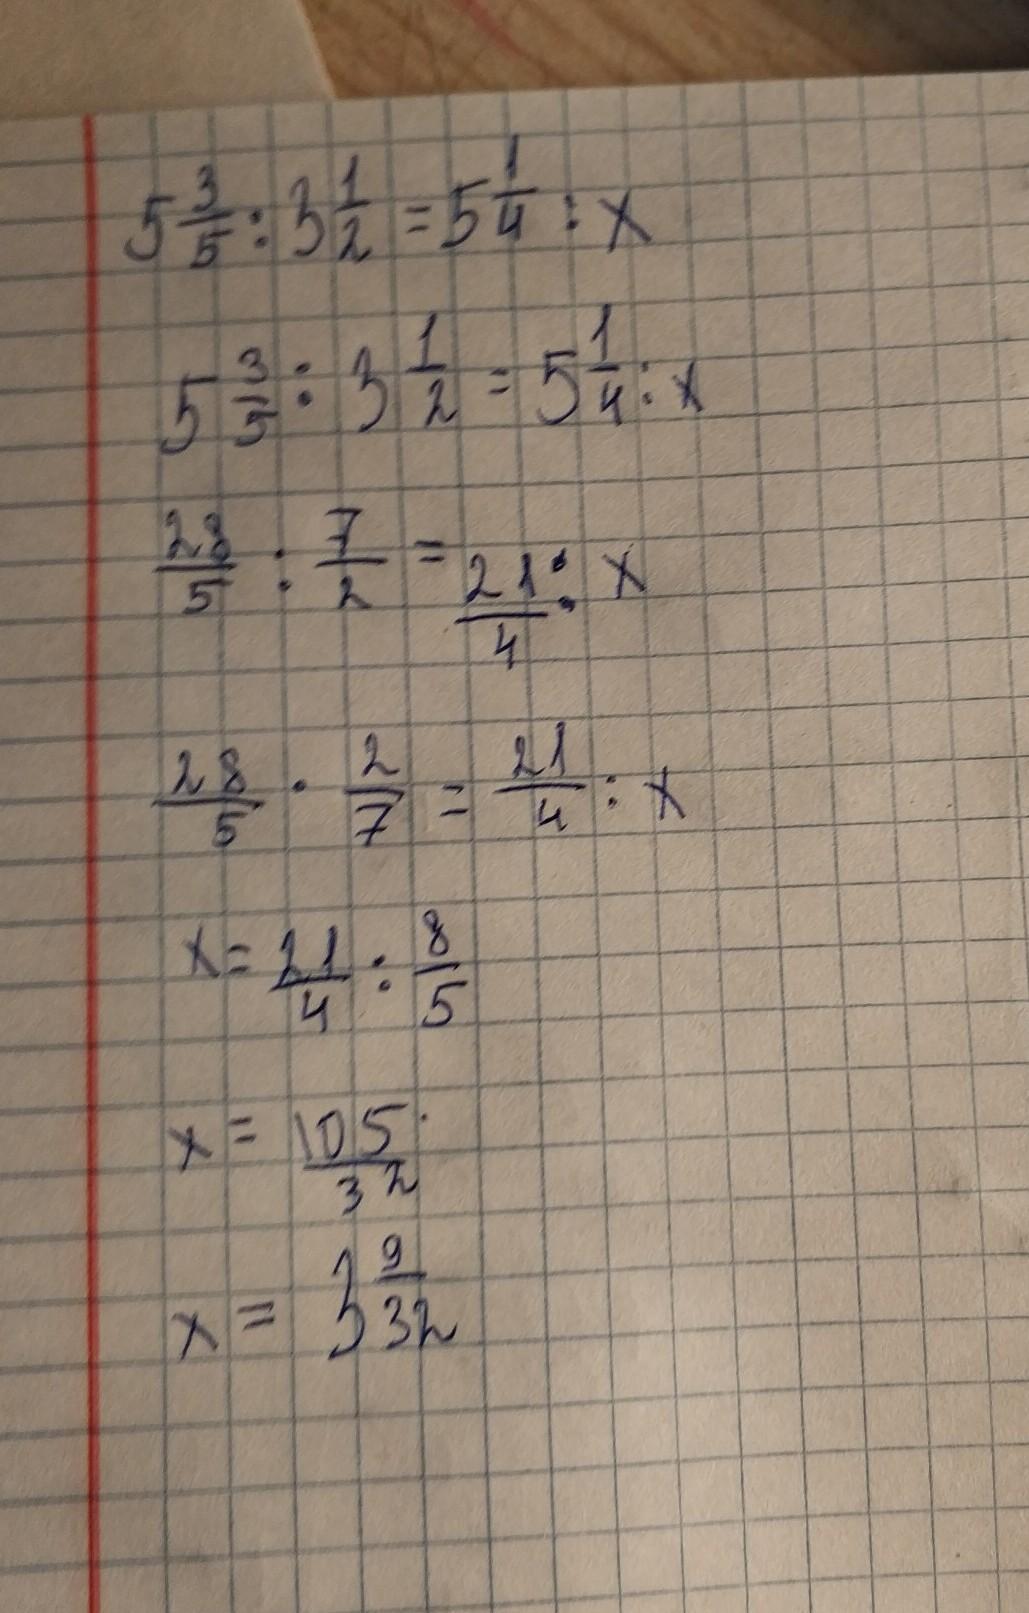 5 3/5 : 3 1/2 = 5 1/4 : x
5 3/5 : 3 1/2 = 5 1/4 : x
28/5 : 7/2 = 21/4 : x
28/5 · 2/7 = 21/4 : x
x = 21/4 : 8/5
x = 105/32
x = 3 9/32